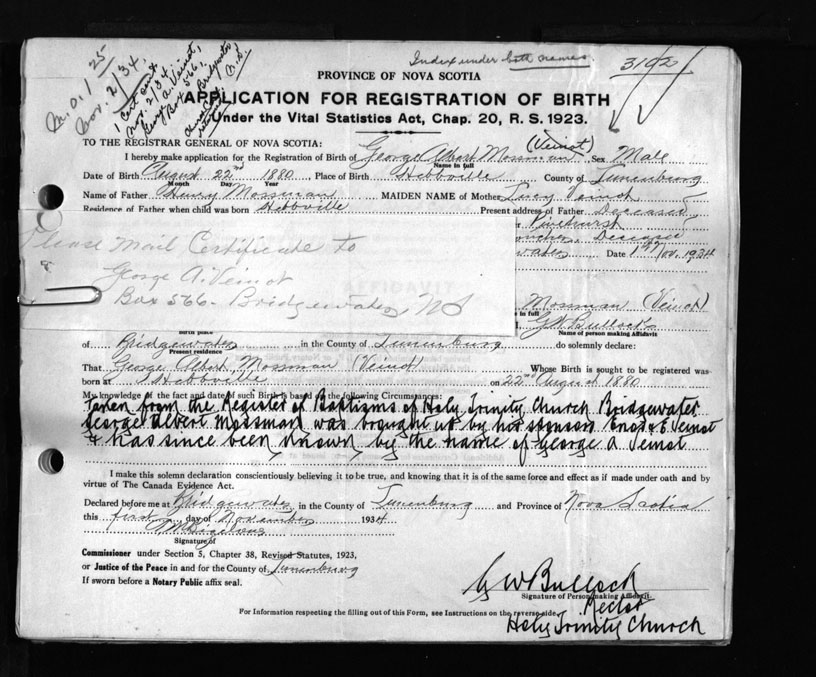 M.O. / 25
Nov. 2/34.
1 Cert sent
Nov. 2, 34.
George A. Veinot,
Box 566,
Bridgewater
N.S.
Index under both names.
3102
PROVINCE OF NOVA SCOTIA
APPLICATION FOR REGISTRATION OF BIRTH
Under the Vital Statistics Act, Chap. 20, R. S. 1923.
TO THE REGISTRAR GENERAL OF NOVA SCOTIA:
I hereby make application for the Registration of Birth of George Albert Mossman (Veinot) Sex Male
Name in full
Date of Birth August 22nd 1880 Place of Birth Hebbville County of Lunenburg
Month Day Year
Name of Father Henry Mossman MAIDEN NAME of Mother Lucy Veinot
Residence of Father when child was born Hebbville Present address of Father Deceased
Pinehurst
Deceased
Date 1st Nov. 1934
Please Mail Certificate to
George A. Veinot
Box 566 - Bridgewater NS
AFFIDAVIT
Mossman (Veinot)
in full
G W Bullock
Name of person making Affidavit
Birth place
of Bridgewater in the County of Lunenburg do solemnly declare:
Present residence
That George Albert Mossman (Veinot) Whose Birth is sought to be registered was
born at Hebbville on 22nd August 1880
My knowledge of the fact and date of such Birth is based on the following Circumstances:
Taken from the Register of Baptisms of Holy Trinity Church Bridgewater
George Albert Mossman was brought up by his sponsors Enos & E Veinot
& has since been known by the name of George A Veinot
I make this solemn declaration conscientiously believing it to be true, and knowing that it is of the same force and effect as if made under oath and by
virtue of The Canada Evidence Act.
Declared before me at Bridgewater in the County of Lunenburg and Province of Nova Scotia
this first day of November 1934
Signature of
Commissioner under Section 5, Chapter 38, Revised Statutes, 1923,
or Justice of the Peace in and for the County of Lunenburg
If sworn before a Notary Public affix seal.
G W Bullock
Signature of Person making Affidavit.
Rector
Holy Trinity Church
For Information respecting the filling out of this Form, see Instructions on the reverse side.